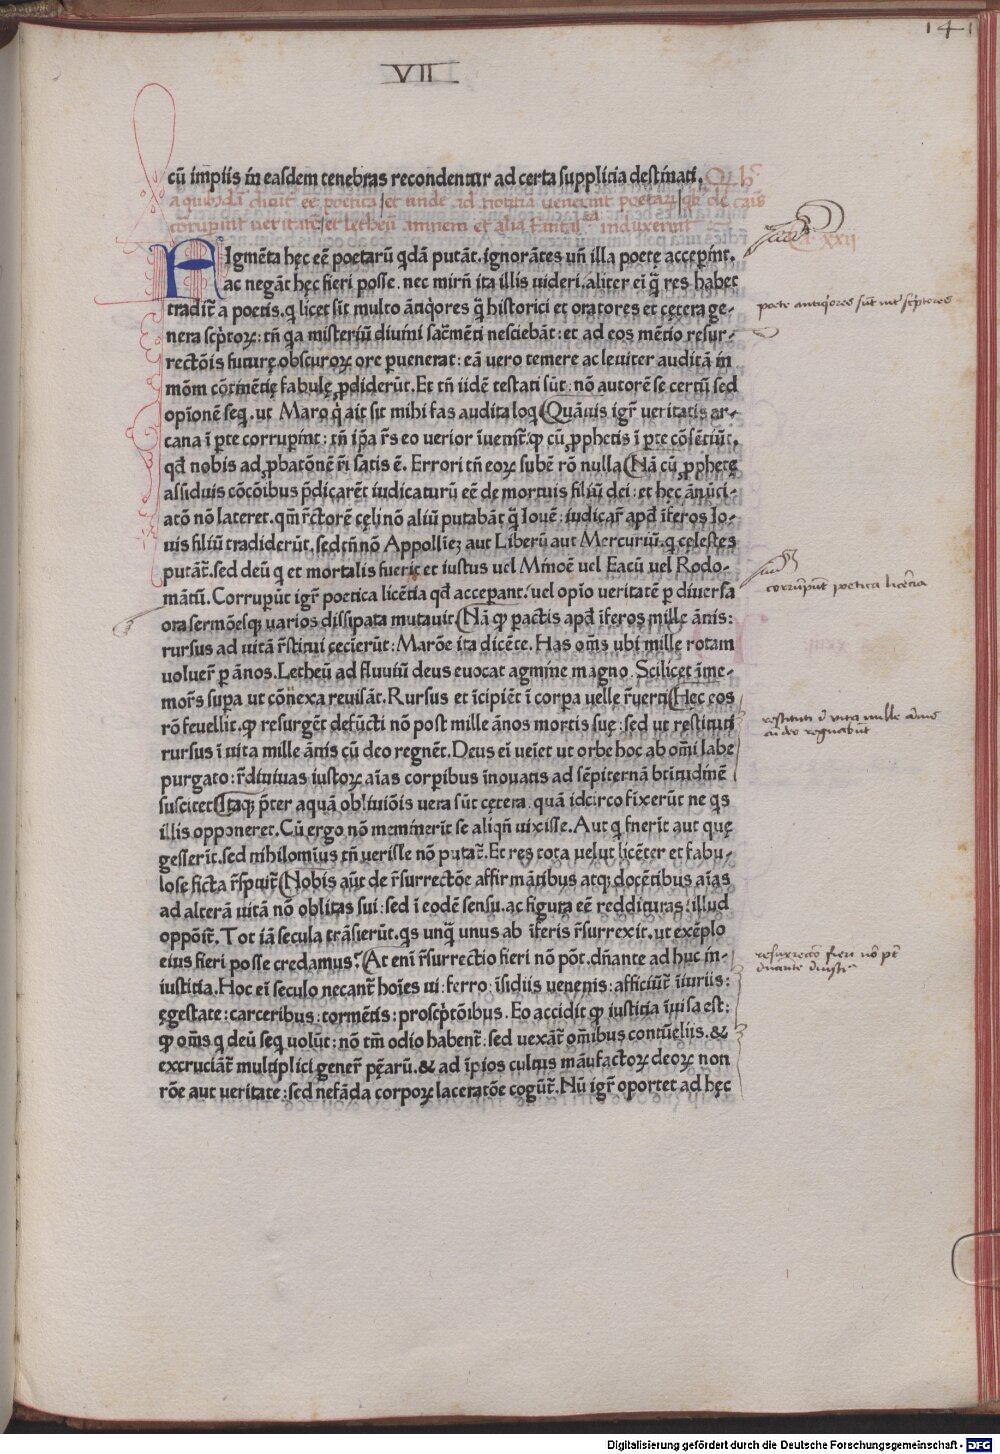 141
VII
cū impiis in easdem tenebras recondentur ad certa supplicia destinati. Qd hec
a quibusdā dicūtˀ eē poetica et unde ad notitiā venerunt poetarū
corruperint ueritatē et letheū amnem et alia induxerint
Ca. xxii
FIgmēta hęc eē poetarū qdā putāt. ignorātes uñ illa poete acceperint.
ac negāt hęc fieri posse. nec mirū ita illis uideri. aliter ei q̄ res habet
tradiť a poetis. q licet sit multo ātiq̄ores q̄ historici et oratores et cętera ge-
nera scp̄torꝝ: tñ qa misteriū diuini sacr̄mēti nesciebāt: et ad eos mētio resur-
rectōis futurę obscuro ore puenerat: eā uero temere ac leuiter auditā in
mōm cōmētię fabulę ꝓdiderūt. Et tñ iidē testati sūt: nō autorē se certū sed
opīonē seq. ut Maro q̓ ait sit mihi fas audita loq Quāuis igr̄ ueritatis ar-
cana ī ꝑte corruperint: tñ ip̄a r̄s eo uerior īuenit̄. ꝙ cū ꝓphetis ī ꝑte cōsētiūt.
qd̄ nobis ad ꝓbatōnē r̄i satis ē. Errori tñ eorꝝ subē rō nulla Nā cū ꝓphetę
assiduis cōcōibus p̄dicarēt iudicaturū eē de mortuis filiū dei: et hęc ānūci-
atō nō lateret. qm̄ r̄ctorē cęli nō aliū putabāt q̄ Iouē: iudicar̄ apd̄ īferos Io-
uis filiū tradiderūt. sed tñ nō Appollīeꝫ aut Liberū aut Mercuriū. q cęlestes
putāt̄. sed deū q et mortalis fuerit et iustus uel Minoē uel Eacū uel Rodo-
mātū. Corrupūt igr̄ poetica licētia qd̄ acceperant. uel opīo ueritatē ꝑ diuersa
ora sermōesqꝫ uarios dissipata mutauit Nā ꝙ pactis apd̄ īferos mille ānis:
rursus ad uitā r̄stitui cecīerūt: Marōe ita dicēte. Has om̄s ubi mille rotam
uoluer̄ ꝑ ānos. Letheū ad fluuiū deus euocat agmine magno. Scilicet īme-
mor̄s supa ut cōnexa reuisāt. Rursus et īcipiēt ī corpa uelle r̄uerti Hęc eos
rō fefellit. ꝙ resurgēt defūcti nō post mille ānos mortis suę: sed ut restituti
rursus ī uita mille ānis cū deo regnēt. Deus eī ueiet ut orbe hoc ab om̄i labe
purgato: r̄diuiuas iustorꝝ aīas corpibus īnouatis ad sēpiternā btitudinē
suscitet Itaqꝫ p̄ter aquā obliuiōis uera sūt cętera. quā idcirco fixerūt ne qs
illis opponeret. Cū ergo nō meminerīt se aliqñ uixisse. Aut q fuerīt aut quę
gesserīt. sed nihilomīus tñ uerisse nō putāt̄. Et res tota uelut licēter et fabu-
lose ficta r̄spuit̄ Nobis aūt de r̄surrectōe affirmātibus atqꝫ docētibus aīas
ad alterā uitā nō oblitas sui: sed ī eodē sensu. ac figura eē reddituras: illud
oppōit̄. Tot iā secula trāsierūt. qs unq̄ unus ab īferis r̄surrexit. ut exēplo
eius fieri posse credamus? At enī r̄surrectio fieri nō pōt. dn̄ante ad huc in-
iustitia. Hoc eī seculo necant̄ hoīes ui: ferro: īsidiis uenenis: afficiūt̄ īiuriis:
ęgestate: carceribus: tormētis: proscp̄tōibus. Eo accidit ꝙ iustitia īuisa est:
ꝙ om̄s q deū seq uolūt: nō tm̄ odio habent̄: sed uexāt̄ om̄ibus contūeliis. &
excruciāt̄ multiplici gener̄ pęarū. & ad īpios cultus māufactorꝝ deorꝝ non
rōe aut ueritate: sed nefāda corporꝝ laceratōe cogūt̄. Nū igr̄ oportet ad hęc
poete antiq̓ores sūt scp̄tores
corrūpūt poetica licētia
restituti ī vita mille annis
cū deo regnabūt
resurrectio fieri nō pōt
dn̄ante iniusti
Digitalisierung gefördert durch die Deutsche Forschungsgemeinschaft - DFG